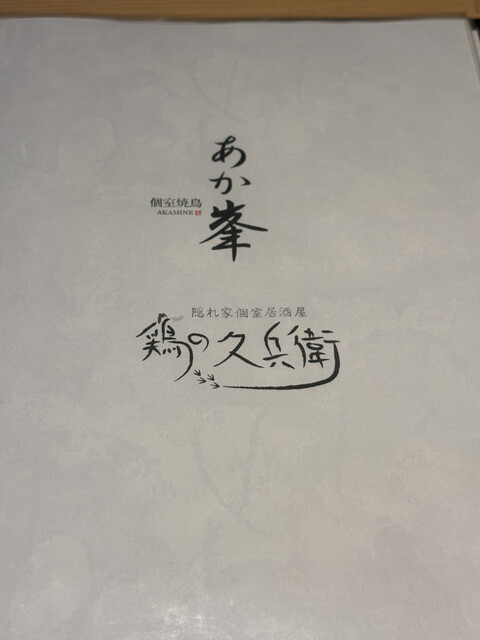 個室焼鳥
AKAMINE
あか峯
隠れ家個室居酒屋
鶏の久兵衛